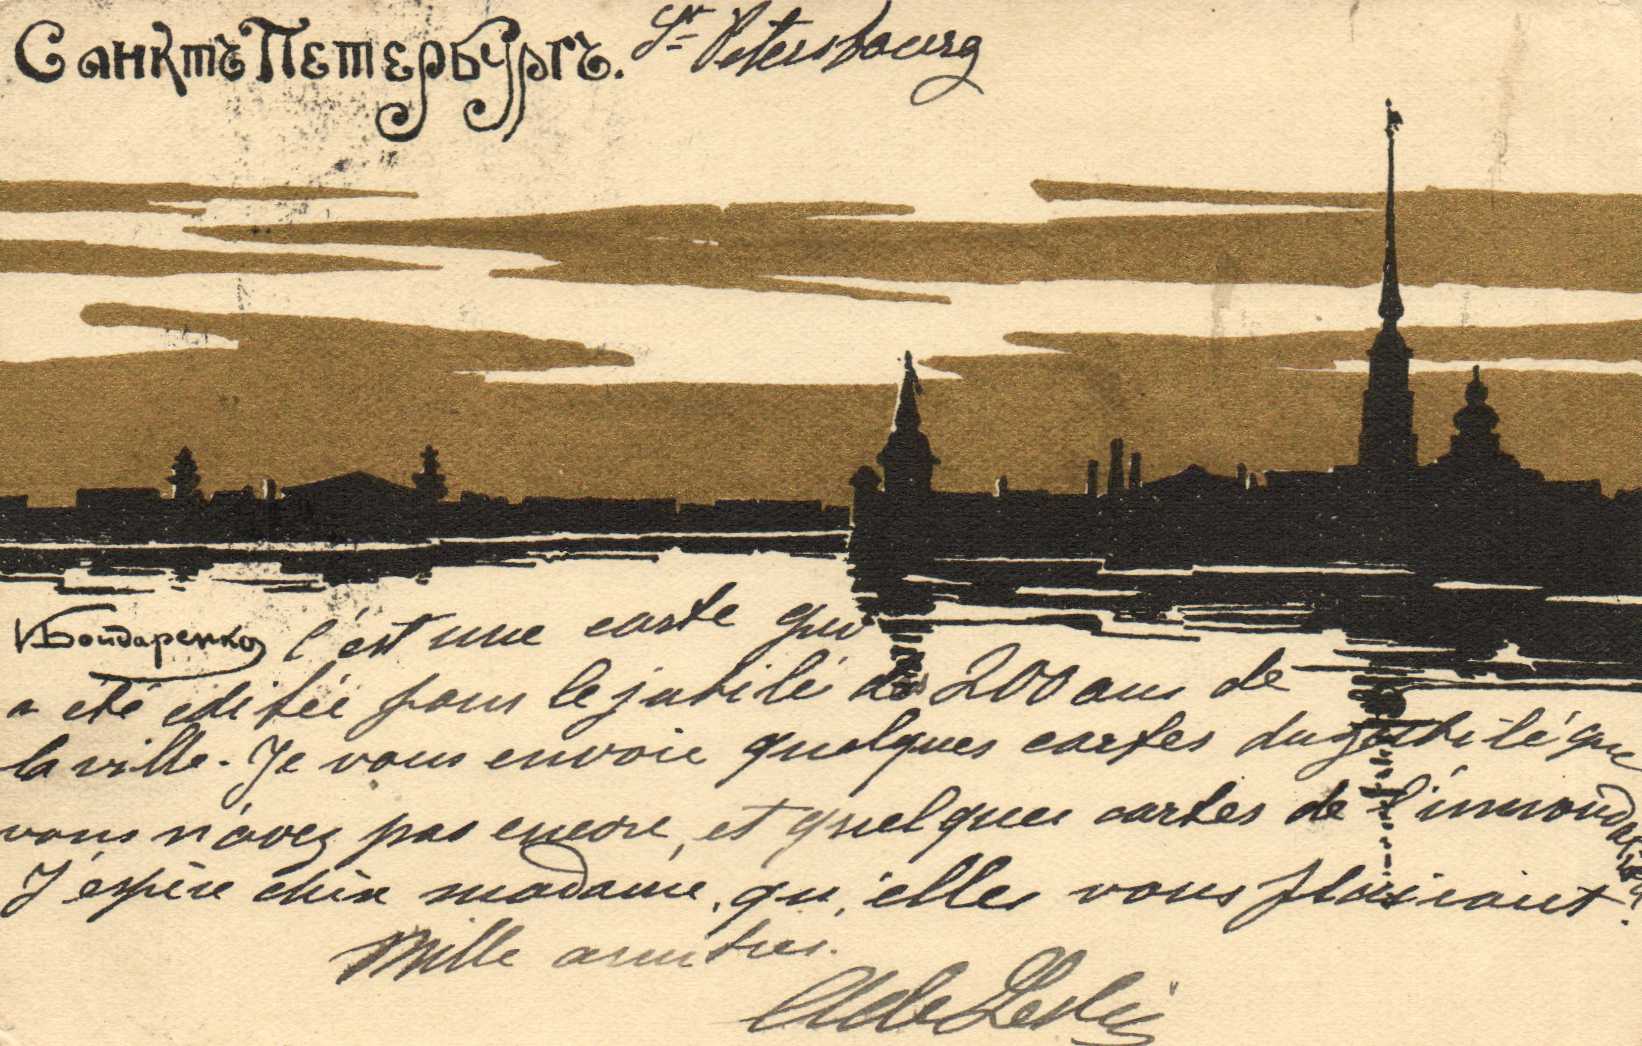 Санктъ Петербургъ. St Petersbourg
И. Бондаренко c'est une carte qui
a été éditée pour le jubilé de 200 ans de
la ville. Je vous envoie quelques cartes du jubilé que
vous n'avez pas encore, et quelques cartes de l'innondation.
J'espère chère madame, qu'elles vous plairaient.
Mille amitiés.